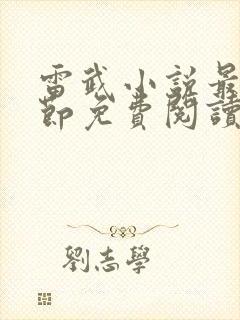 雷武小說最
節免費閱讀
劉志學